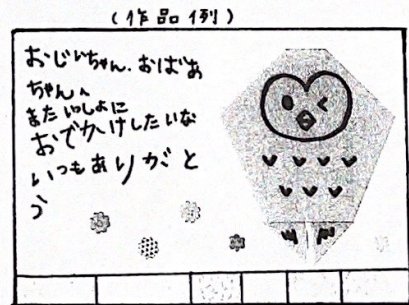 (作品例)
おじいちゃん、おばあ
ちゃんへ
またいっしょに
おでかけしたいな
いつもありがと
う